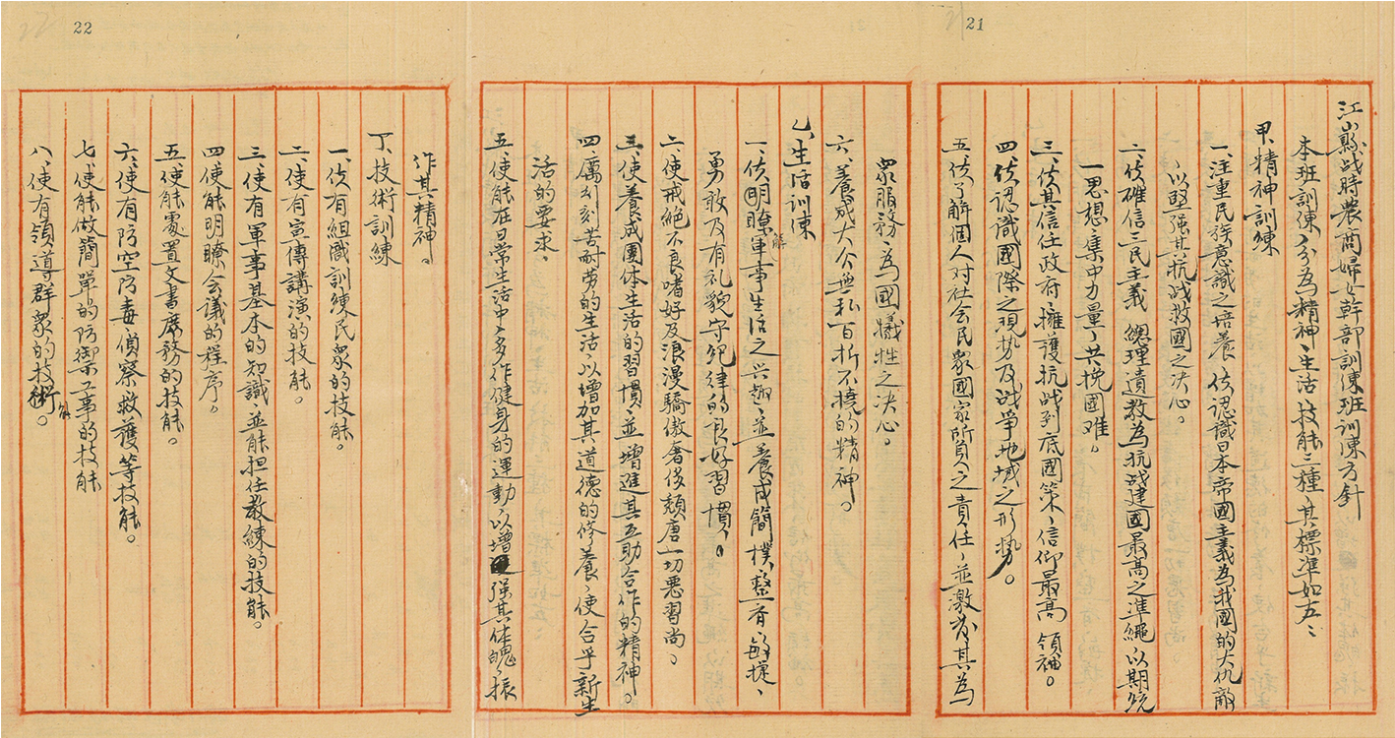 21
江山縣战時農商婦女幹部訓練班訓練方針
本班訓練分為精神、生活、技能三種、其標準如左：
甲、精神訓練
一、注重民族意識之培養 使認識日本帝國主義為我國的大仇敵
以堅强其抗战救國之决心。
二、使確信三民主義 總理遺教為抗战建國最高之準繩以期統
一思想、集中力量、共挽國难。
三、使其信任政府擁護抗战到底國策、信仰最高 領袖。
四、使認識國際之現势及战爭地域之形势。
五、使了解個人对社会民衆國家所負之責任、並激发其為
衆服務、為國犧牲之决心。
六、養成大公無私百折不撓的精神。
乙、生活訓练
一、使明瞭解軍事生活之兴趣、並養成簡樸、整齐、敏捷、
勇敢及有礼貌守纪律的良好習慣。
二、使戒絕不良嗜好及浪漫驕傲奢侈頽唐一切惡習尚。
三、使養成團体生活的習慣、並增進其互助合作的精神。
四、厲行刻苦耐劳的生活、以增加其道德的修養、使合乎新生
活的要求。
五、使能在日常生活中多作健身的運動、以增强其体魄、振
22
作其精神。
丁、技術訓練
一、使有組織訓練民衆的技能。
二、使有宣傳講演的技能。
三、使有軍事基本的知識、並能担任教練的技能。
四、使能明瞭会議的程序。
五、使能處置文書庶務的技能。
六、使有防空防毒、偵察救護等技能。
七、使能做簡單的防御工事的技能
八、使有領導群衆的技術。